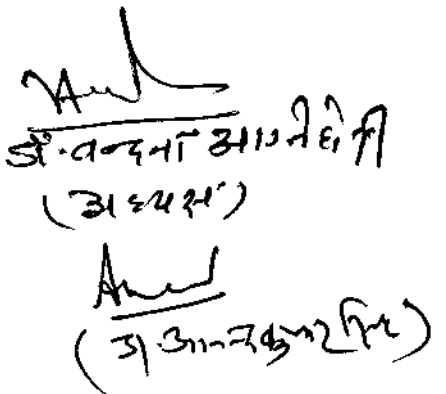 डॉ. वन्दना अग्निहोत्री
(अध्यक्ष)
(डा. आनन्द कुमार सिंह)